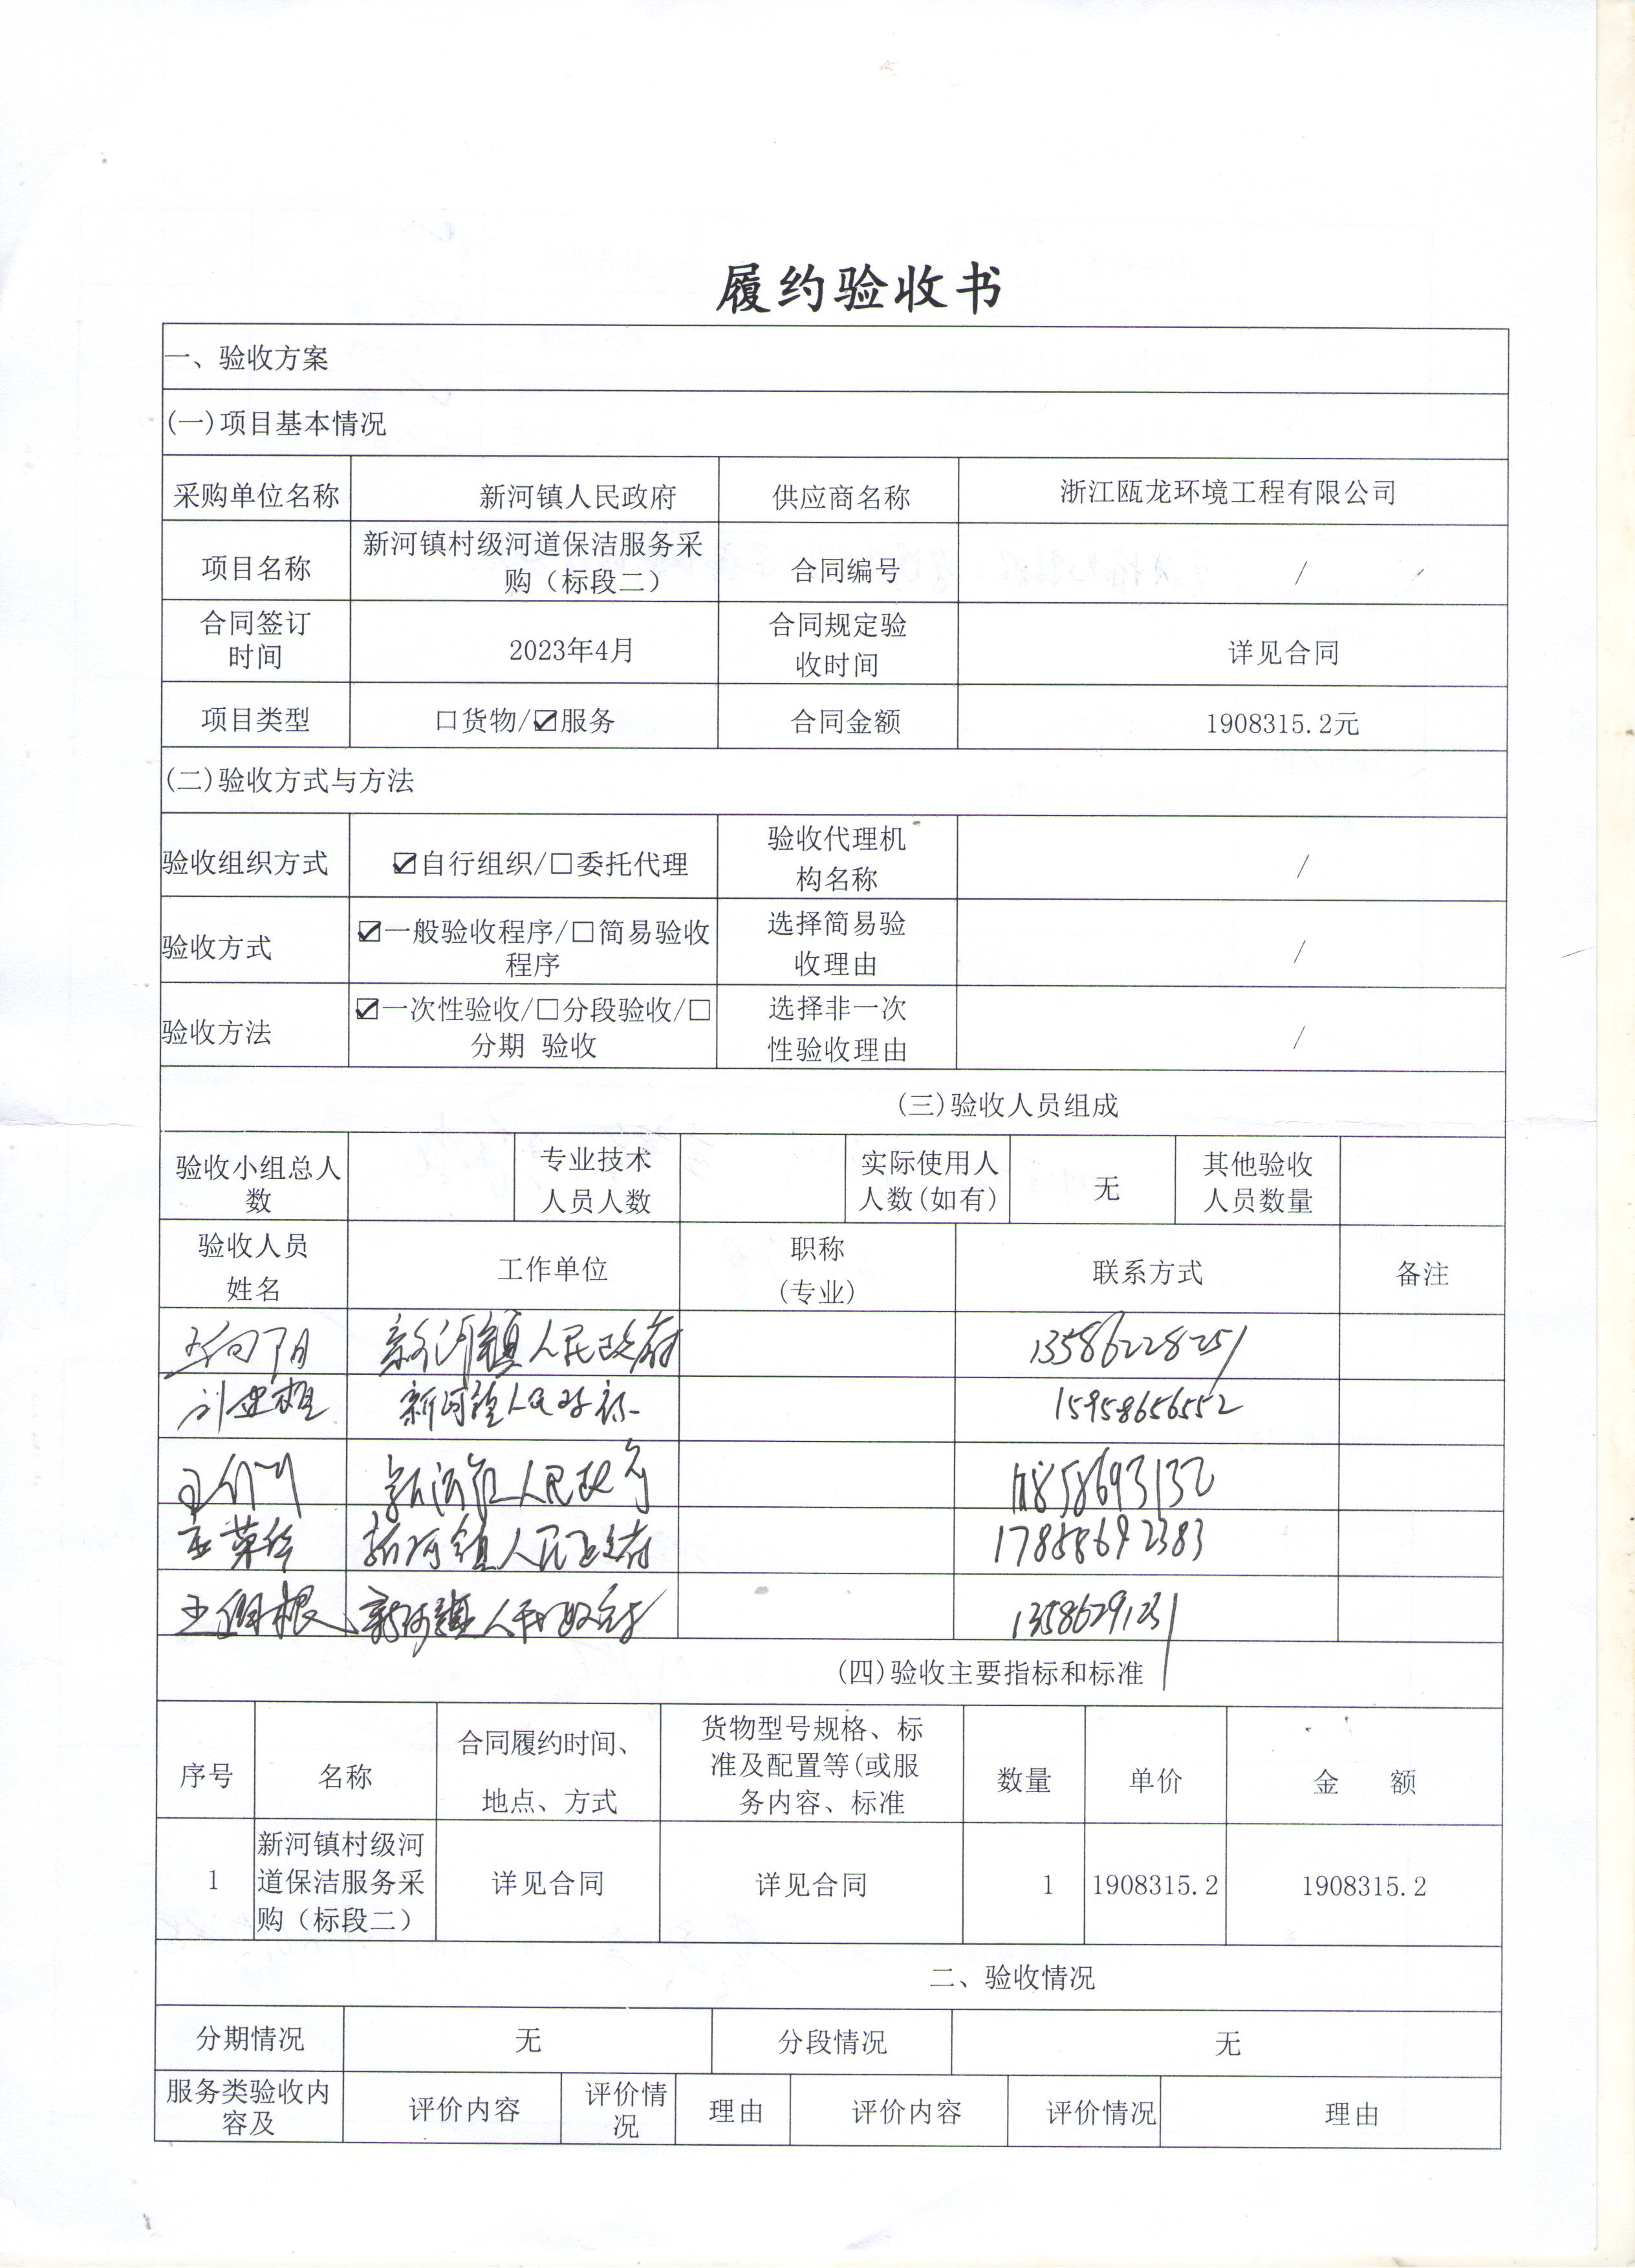 履约验收书
一、验收方案
(一)项目基本情况
采购单位名称 新河镇人民政府 供应商名称 浙江瓯龙环境工程有限公司
项目名称 新河镇村级河道保洁服务采
购（标段二） 合同编号 /
合同签订
时间 2023年4月 合同规定验
收时间 详见合同
项目类型 口货物/☑服务 合同金额 1908315.2元
(二)验收方式与方法
验收组织方式 ☑自行组织/□委托代理 验收代理机
构名称 /
验收方式 ☑一般验收程序/□简易验收
程序 选择简易验
收理由 /
验收方法 ☑一次性验收/□分段验收/□
分期 验收 选择非一次
性验收理由 /
(三)验收人员组成
验收小组总人
数 专业技术
人员人数 实际使用人
人数(如有) 无 其他验收
人员数量
验收人员
姓名 工作单位 职称
(专业) 联系方式 备注
新河镇人民政府 13586228251
新河镇人民政府 15958656552
新河镇人民政府
新河镇人民政府 17858692383
王 根 新河镇人民政府 13586291231
(四)验收主要指标和标准
序号 名称 合同履约时间、
地点、方式 货物型号规格、标
准及配置等(或服
务内容、标准 数量 单价 金 额
1 新河镇村级河
道保洁服务采
购（标段二） 详见合同 详见合同 1 1908315.2 1908315.2
二、验收情况
分期情况 无 分段情况 无
服务类验收内
容及 评价内容 评价情
况 理由 评价内容 评价情况 理由